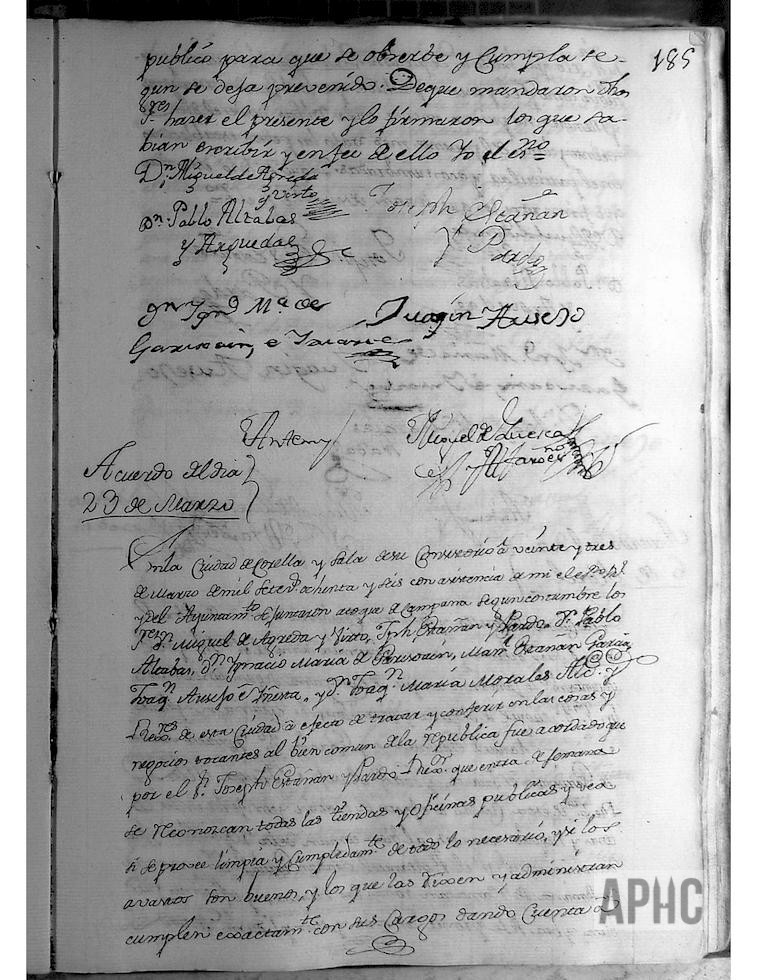 185
publico para que se obserbe y Cumpla se-
gun se deja prevenido. Deque mandaron dhos
S.res hazer el presente y lo firmaron los que sa-
bian escribir y en fee de ello Yo el es.no
D.n Miguel de Agreda
y Virto
D.n Pablo Altabas
y Arguedas
Joseph Estañan
y Pardo
D.n Ygn.o M.a de
Garisoain, e Joaquin Ausejo
Antemy Miguel de
Acuerdo del dia
23 de Marzo
En la Ciudad de Corella y Sala de su Consistorio a veinte y tres
de Marzo de mil Setez.s ochenta y seis con asistencia de mi el es.no R.l
y del Ayuntam.to se juntaron a toque de Campana segun costumbre los
S.res D.n Miguel de Agreda y Virto, Jph Estañan y Pardo, D.n Pablo
Altabas, D.n Ygnacio Maria de Garisoain, Man.l Estañan Garcia,
Joaq.n Ausejo e Yñesta, y D.n Joaq.n Maria Morales Alc.e y
Rexo.res de esta Ciudad a efecto de tratar y conferir en las cosas y
negocios tocantes al bien comun de la republica fue acordado que
por el S.r Joseph Estañan y Pardo Rexo.r que entra de semana
se reconozcan todas las tiendas y oficinas publicas y vea
si se provee limpia y Cumplidam.te de todo lo necesario, y si los
avastos son buenos, y los que las rixen y administran
cumplen exactam.te con sus Cargos dando Cuenta a
APHC